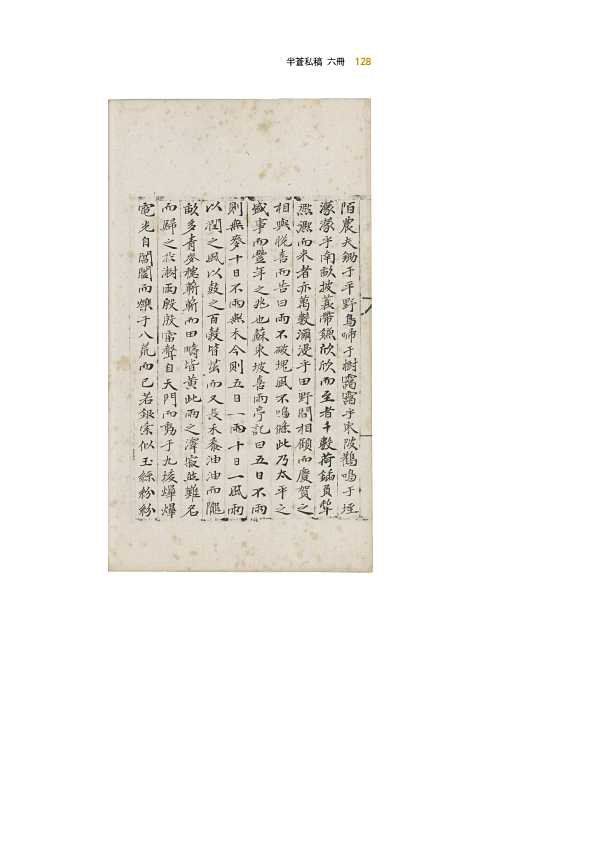 半蒼私稿 六冊 128
陌農夫鋤于平野鳥啼于樹靄靄乎東陂鵲鳴于垤
濛濛乎南畝披蓑帶鎌欣欣而至者千數荷鍤負犁
熙熙而來者亦萬數瀰漫乎田野間相顧而慶賀之
相與悅喜而告曰雨不破塊風不鳴條此乃太平之
盛事而豐年之兆也蘇東坡喜雨亭記曰五日不雨
則無麥十日不雨無禾今則五日一雨十日一風雨
以潤之風以鼓之百穀皆茁而又長禾黍油油而隴
畝多青麥穗蔪蔪而田疇皆黃此雨之澤寂然難名
而歸之於澍雨殷殷雷聲自天門而動于九垓燁燁
電光自閶闔而爍于八荒而已若銀索似玉綵紛紛